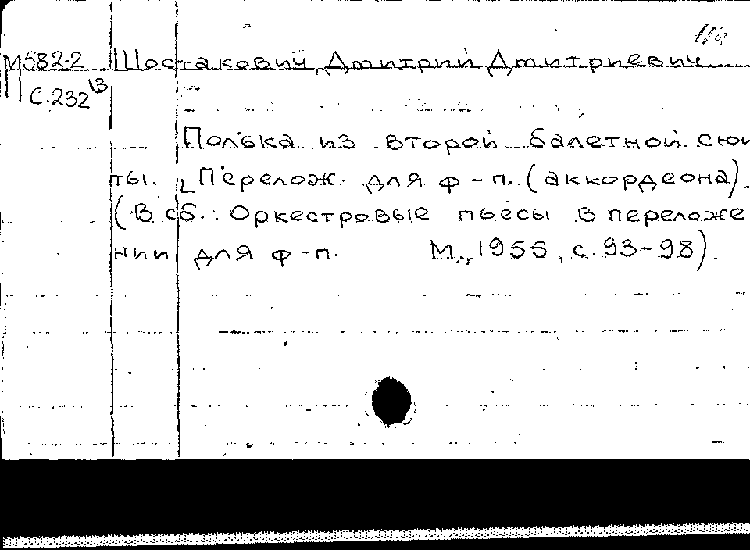 М582-2 Шостакович, Дмитрий Дмитриевич
С.232
Полька из второй балетной сюи
ты. Перелож. для ф-п. (аккордеона).
(В сб.: Оркестровые пьесы в переложе
нии для ф-п. М., 1955, с. 93-98).